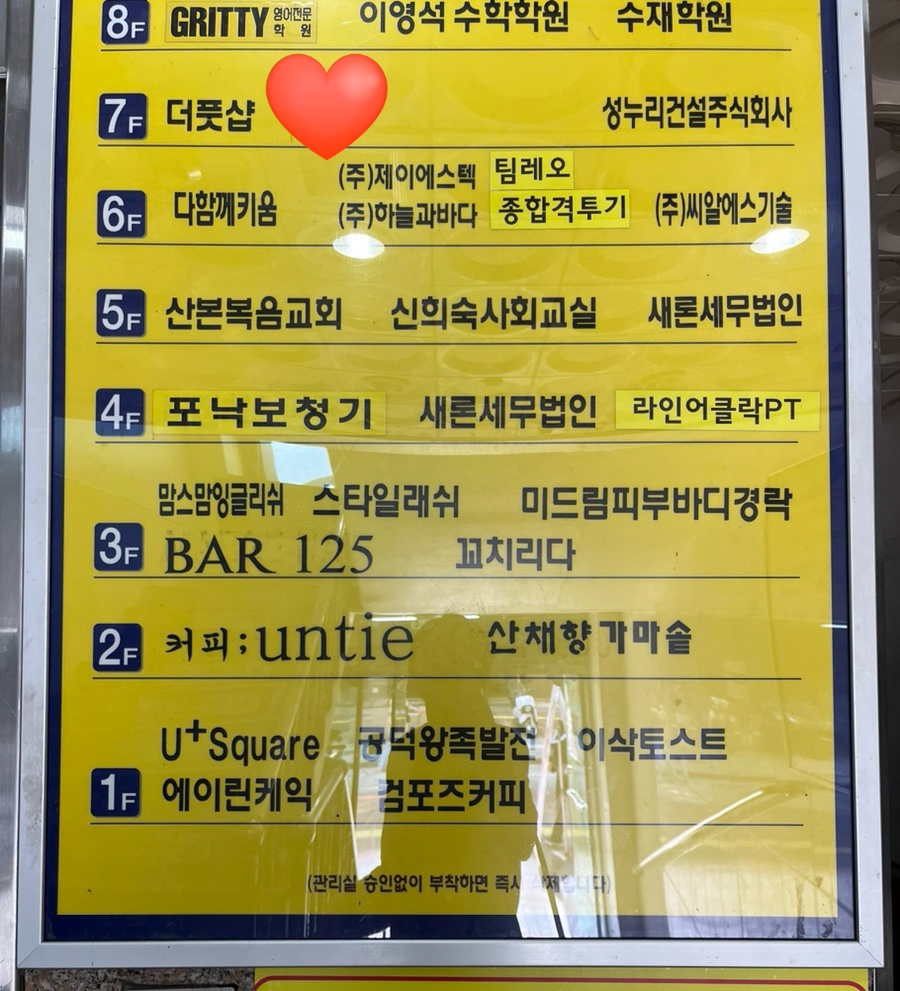 8F GRITTY 영어전문 학원 이영석 수학학원 수재학원
7F 더풋샵 성누리건설주식회사
(주)제이에스텍 팀레오
6F 다함께키움 (주)하늘과바다 종합격투기 (주)씨알에스기술
5F 산본복음교회 신희숙사회교실 새론세무법인
4F 포낙보청기 새론세무법인 라인어클락PT
맘스맘잉글리쉬 스타일래쉬 미드림피부바디경락
3F BAR 125 꼬치리다
2F 커피;untie 산채향가마솥
U+Square 공덕왕족발전 이삭토스트
1F 에이린케익 컴포즈커피
(관리실 승인없이 부착하면 즉시 삭제합니다)